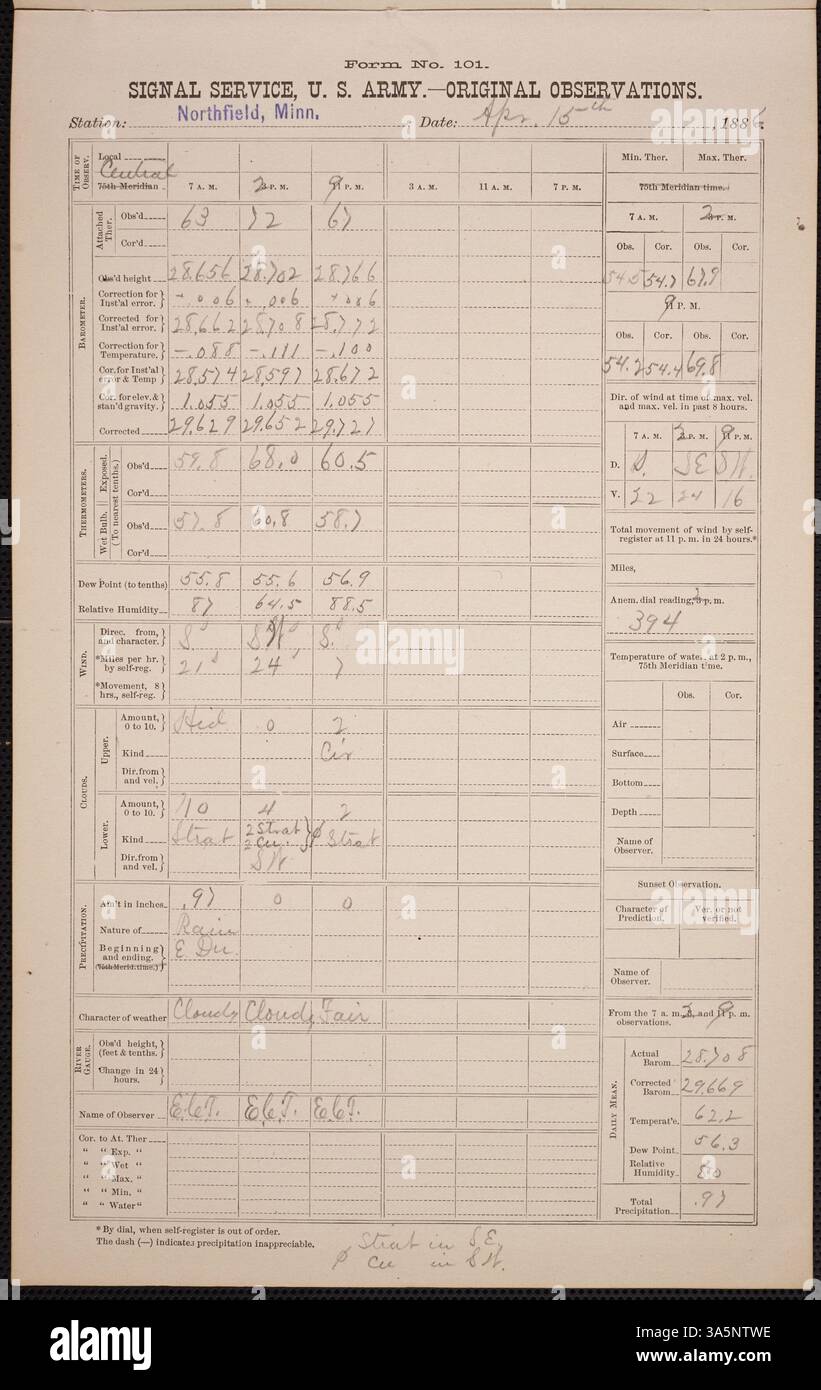 Form No. 101.
SIGNAL SERVICE, U. S. ARMY.—ORIGINAL OBSERVATIONS.
Station: Northfield, Minn. Date: Apr. 15th, 1886
TIME OF OBSERV. Local Central
75th Meridian 7 A. M. 2 P. M. 9 P. M. 3 A. M. 11 A. M. 7 P. M.
BAROMETER.
Attached Ther. Obs'd 63 72 67
Cor'd
Obs'd height 28.656 28.702 28.766
Correction for Inst'al error. +.006 .006 +.006
Corrected for Inst'al error. 28.662 28.708 28.772
Correction for Temperature. -.088 -.111 -.100
Cor. for Inst'al error & Temp 28.574 28.597 28.672
Cor. for elev. & stan'd gravity. 1.055 1.055 1.055
Corrected 29.629 29.652 29.727
THERMOMETERS. (To nearest tenths.)
Exposed. Obs'd 59.8 68.0 60.5
Cor'd
Wet Bulb. Obs'd 57.8 60.8 58.7
Cor'd
Dew Point (to tenths) 55.8 55.6 56.9
Relative Humidity 87 64.5 88.5
WIND.
Direc. from, and character. S SW S.
*Miles per hr. by self-reg. 21 24 7
*Movement, 8 hrs., self-reg.
CLOUDS.
Upper. Amount, 0 to 10. Hid 0 2
Kind Cir
Dir. from and vel.
Lower. Amount, 0 to 10. 10 4 2
Kind Strat 2 Strat 2 Cu. Strat
Dir. from and vel. SW
PRECIPITATION.
Am't in inches .97 0 0
Nature of Rain
Beginning and ending. (75th Merid. time.) E. Du.
Character of weather Cloudy Cloudy Fair
RIVER GAUGE.
Obs'd height, (feet & tenths.)
Change in 24 hours.
Name of Observer E.C.T. E.C.T. E.C.T.
Cor. to At. Ther
" " Exp. "
" " Wet "
" " Max. "
" " Min. "
" " Water "
* By dial, when self-register is out of order.
The dash (—) indicates precipitation inappreciable.
Strat in S.E.
Cu in SW.
Min. Ther. Max. Ther.
75th Meridian time.
7 A. M. 2 P. M.
Obs. Cor. Obs. Cor.
54.5 54.7 67.9
9 P. M.
Obs. Cor. Obs. Cor.
54.2 54.4 69.8
Dir. of wind at time of max. vel. and max. vel. in past 8 hours.
7 A. M. 2 P. M. 9 P. M.
D. S. SE SW.
V. 22 24 16
Total movement of wind by self-register at 11 p. m. in 24 hours.*
Miles,
Anem. dial reading, 2 p. m.
394
Temperature of water at 2 p. m., 75th Meridian time.
Obs. Cor.
Air
Surface
Bottom
Depth
Name of Observer.
Sunset Observation.
Character of Prediction. Ver. or not verified.
Name of Observer.
From the 7 a. m., 2, and 9 p. m. observations.
DAILY MEAN.
Actual Barom 28.708
Corrected Barom 29.669
Temperat'e. 62.2
Dew Point 56.3
Relative Humidity 80
Total Precipitation .97
alamy
a
alamy
Image ID: 3A5NTWE
www.alamy.com